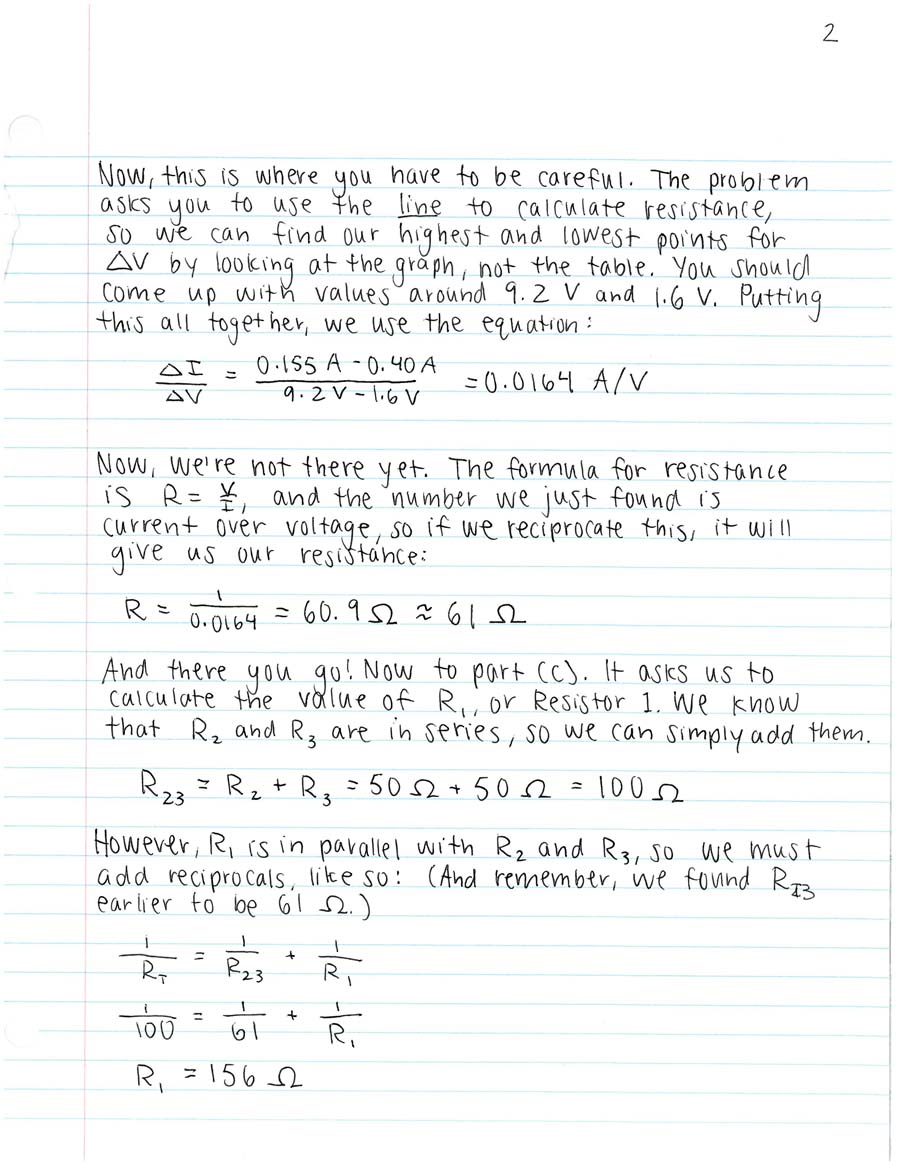 2
Now, this is where you have to be careful. The problem
asks you to use the line to calculate resistance,
so we can find our highest and lowest points for
ΔV by looking at the graph, not the table. You should
come up with values around 9.2 V and 1.6 V. Putting
this all together, we use the equation:
ΔI/ΔV = (0.155 A - 0.40 A)/(9.2 V - 1.6 V) = 0.0164 A/V
Now, we're not there yet. The formula for resistance
is R = V/I, and the number we just found is
current over voltage, so if we reciprocate this, it will
give us our resistance:
R = 1/0.0164 = 60.9 Ω ≈ 61 Ω
And there you go! Now to part (c). It asks us to
calculate the value of R₁, or Resistor 1. We know
that R₂ and R₃ are in series, so we can simply add them.
R₂₃ = R₂ + R₃ = 50 Ω + 50 Ω = 100 Ω
However, R₁ is in parallel with R₂ and R₃, so we must
add reciprocals, like so: (And remember, we found R_I3
earlier to be 61 Ω.)
1/R_T = 1/R₂₃ + 1/R₁
1/100 = 1/61 + 1/R₁
R₁ = 156 Ω